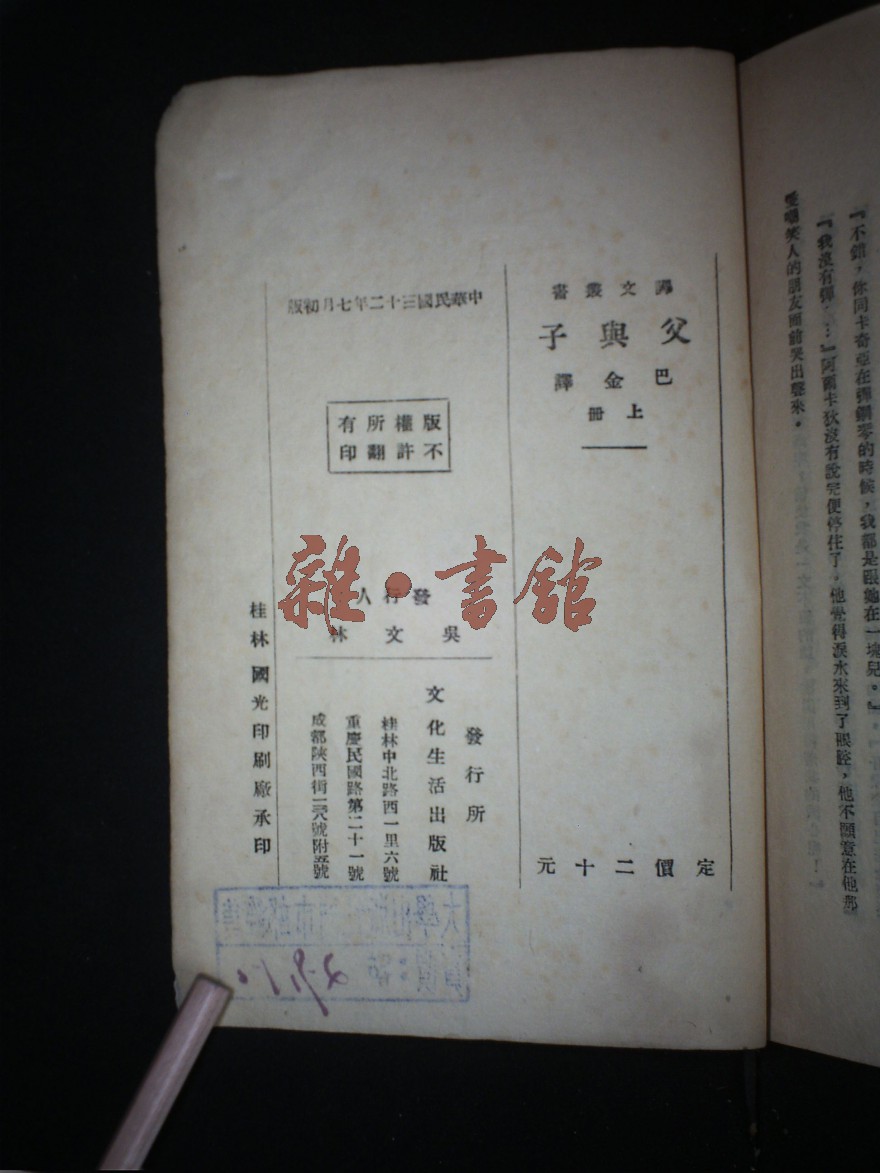 『不錯，你同卡奇亞在彈鋼琴的時候，我都是跟她在一塊兒。』
『我沒有彈…』阿爾卡狄沒有說完便停住了，他覺得淚水來到了眼眶，他不願意在他那
愛嘲笑人的朋友面前哭出聲來。
譯文叢書
父與子
巴金譯
上冊
定價二十元
中華民國三十二年七月初版
版權所有
不許翻印
發行人
吳文林
發行所
文化生活出版社
桂林中北路西一里六號
重慶民國路第二十一號
成都陝西街一三八號附五號
桂林國光印刷廠承印
雜·書館